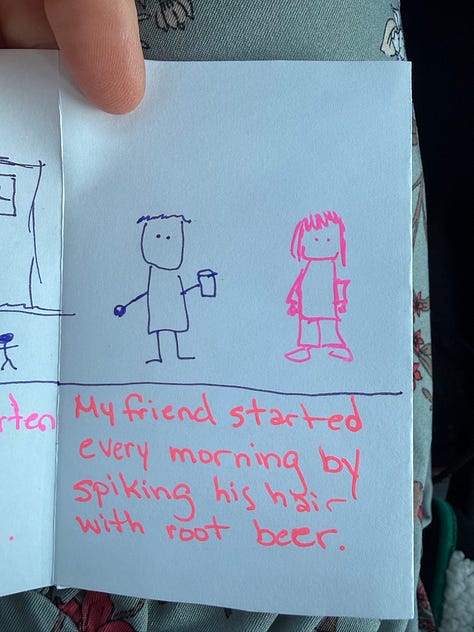 rten
.
My friend started
every morning by
spiking his hair
with root beer.